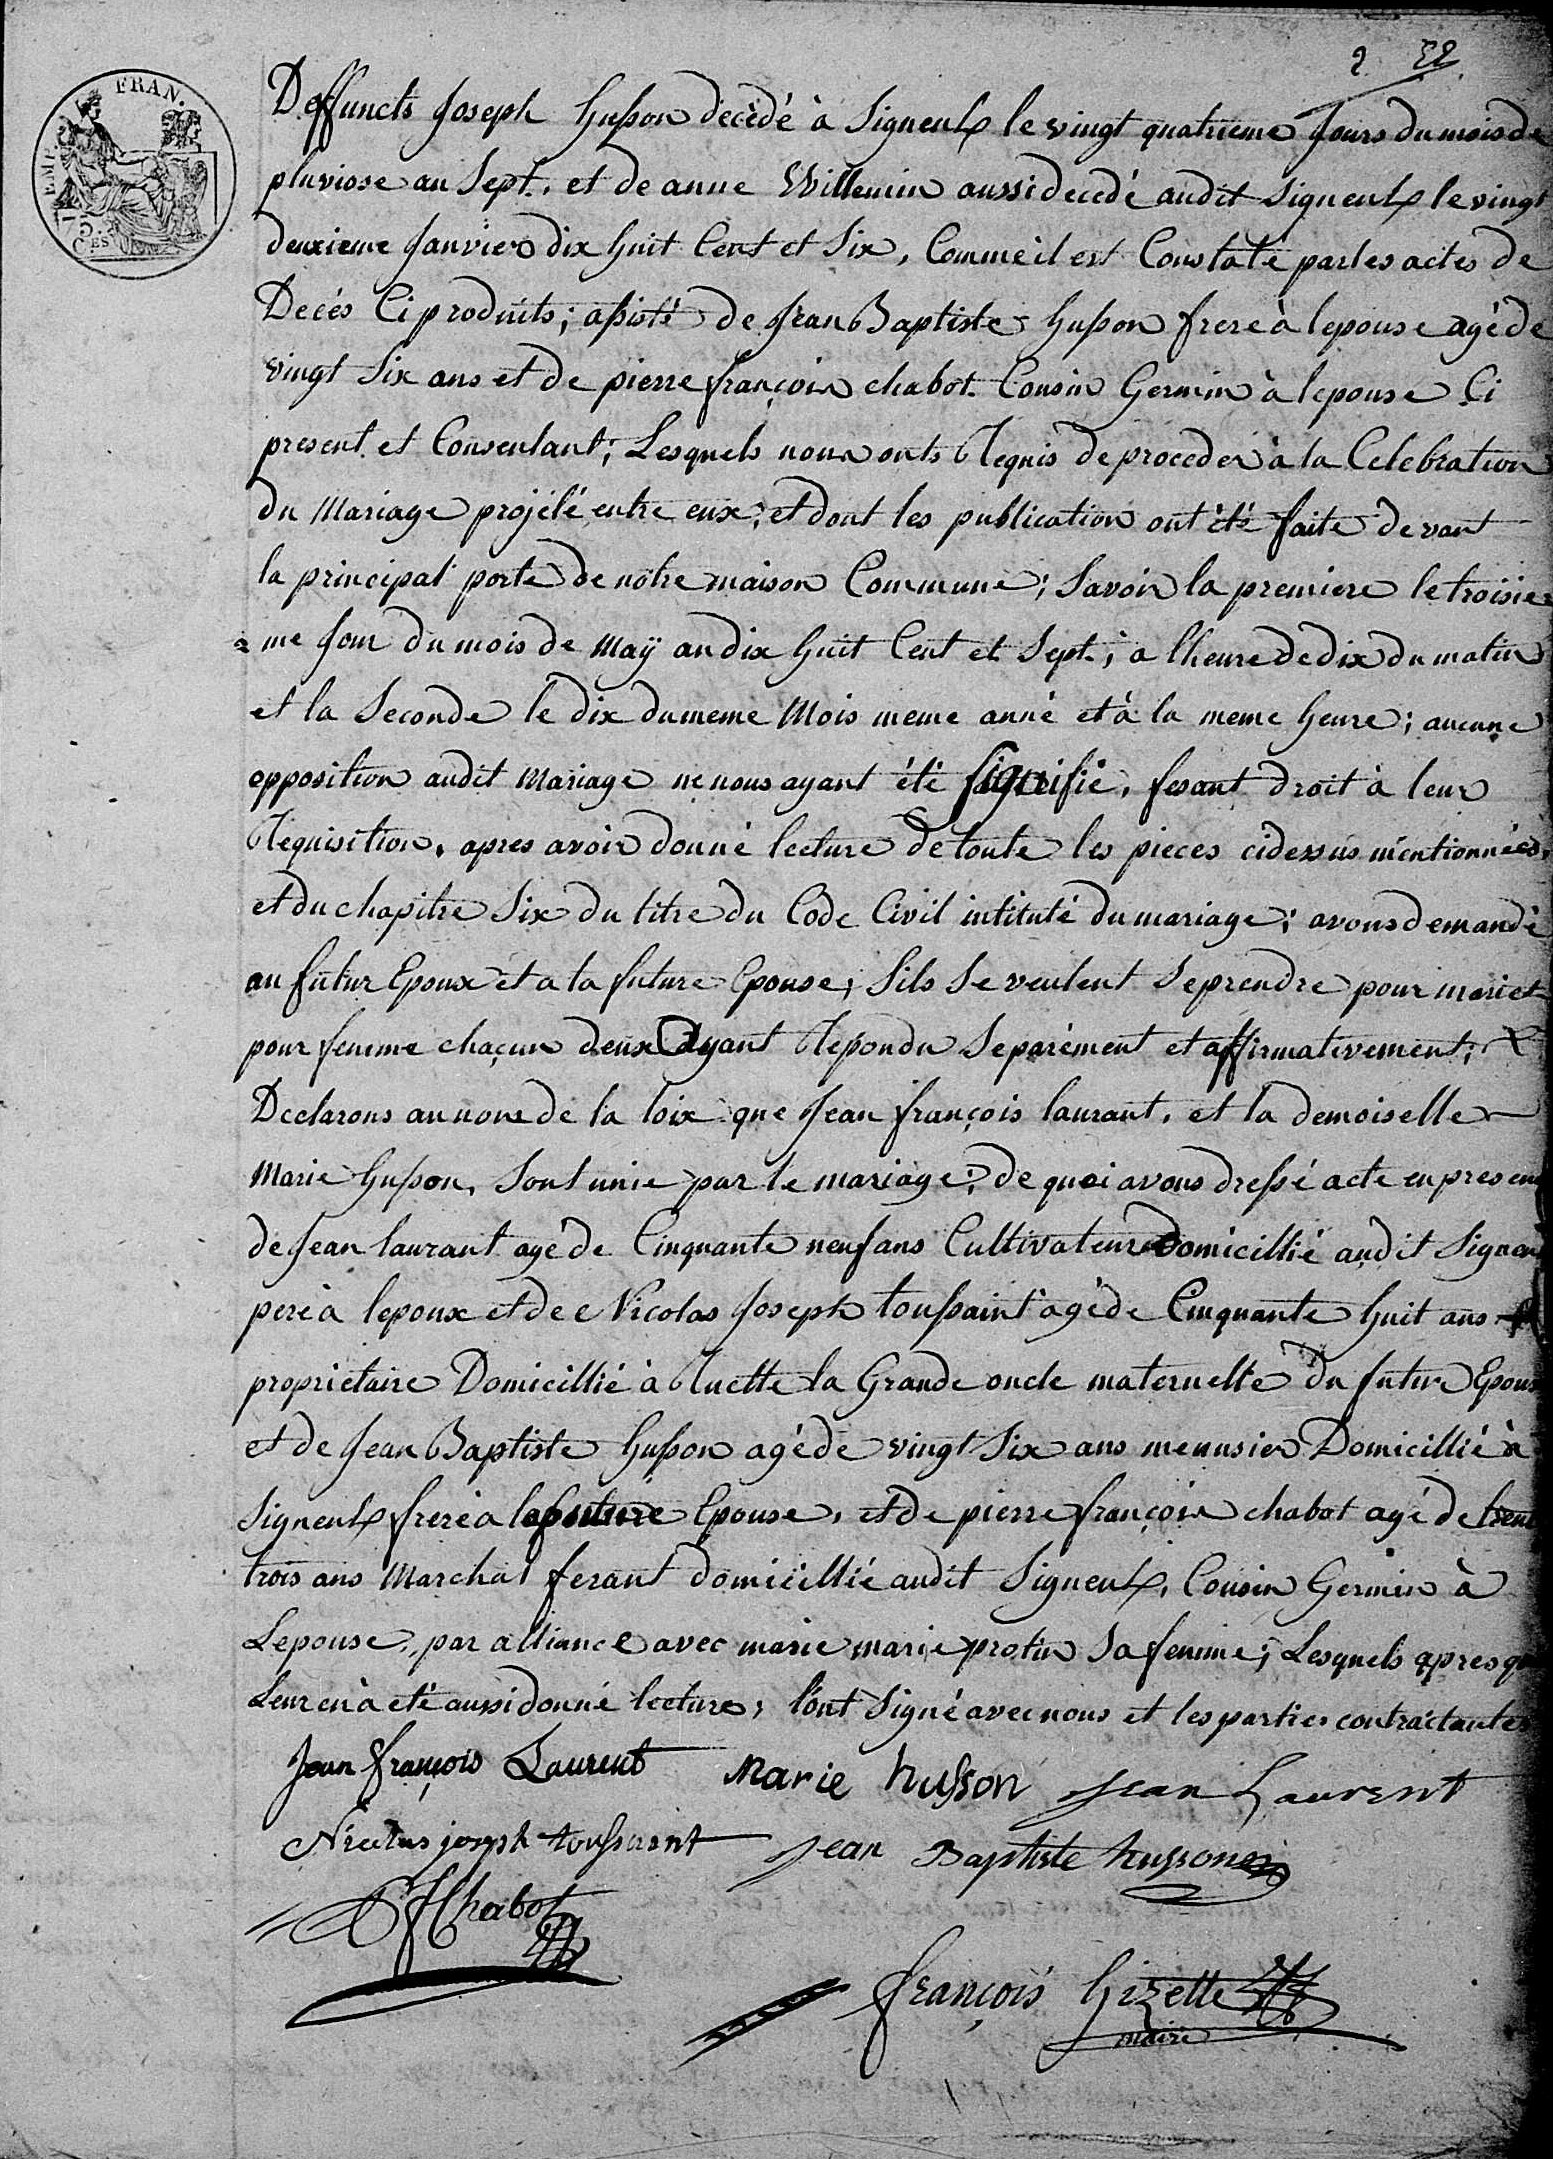 2 22
FRAN.
EMP.
75
CES
Deffuncts Joseph Husson decèdé à Signeulx le vingt quatrieme Jours du mois de
pluviose an Sept. et de anne Willemin aussi decedé audit Signeulx le vingt
deuxieme Janvier dix huit Cent et Six, Comme il est Constaté par les actes de
Decés Ci produits; assisté de Jean Baptiste Husson frere à lepouse agé de
vingt Six ans et de pierre françois chabot Cousin Germin à lepouse Ci
present et Consentant; Lesquels nous onts Requis de proceder à la Celebration
du Mariage projété entre eux; et dont les publication ont été faite devant
la principal porte de notre maison Commune; Savoir la premiere le troisie
me Jour du mois de Maÿ an dix huit Cent et Sept; a lheure de dix du matin
et la Seconde le dix du meme Mois meme anné et à la meme heure; aucune
opposition audit Mariage ne nous ayant été signifié, fesant droit à leur
Requisition, apres avoir donné lecture de toute les pieces cidessus mentionnées,
et du chapitre Six du titre du Code Civil intitulé du mariage; avons demandé
au futur Epoux et a la future Epouse, Sils Se veulent Se prendre pour mari et
pour femme chaçun deux Ayant Repondu Separément et affirmativement;
Declarons au nom de la loix que Jean françois laurant, et la demoiselle
Marie Husson, Sont unie par le mariage; de quoi avons dressé acte en presen
de Jean laurant agé de Cinquante neuf ans Cultivateur Domicillié audit Signeu
pere à lepoux et de Nicolas Joseph toussaint agé de Cinquante huit ans
proprietaire Domicillié à Ruette la Grande oncle maternelle du futur Epoux
et de Jean Baptiste Husson agé de vingt Six ans menusier Domicillié à
Signeulx frere à la future Epouse, et de pierre françois chabot agé de trente
trois ans Marchal ferant domicillié audit Signeulx, Cousin Germin à
Lepouse, par alliance avec marie marie protin Sa femme; Lesquels apres que
Leur en à eté aussi donné lecture, l'ont Signé avec nous et les parties contractantes
Jean françois Laurent Marie husson Jean Laurent
Nicolas joseph toussaint Jean Baptiste husson
PF Chabot
françois Gizette
maire